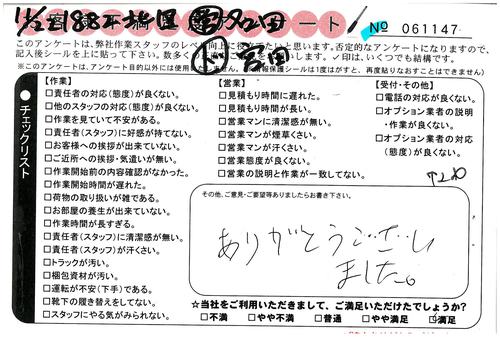 ート!
№ 061147
このアンケートは、弊社作業スタッフのレベ
向上に役
たいと思います。否定的なアンケートになりますので、
記入後シールを上に貼って下さい。
✓印は、いくつでも結構です。
※このアンケートは、アンケート目的以外には使用
報保護シールは1度はがすと、再度貼りなおすことはできません)
チェックリスト
【作業】
□責任者の対応(態度)が良くない。
□他のスタッフの対応(態度)が良くない。
□作業を見ていて不安がある。
□責任者(スタッフ)に好感が持てない。
□お客様への挨拶が出来ていない。
□ご近所への挨拶・気遣いが無い。
□作業開始前の内容確認がなかった。
□作業開始時間が遅れた。
□荷物の取り扱いが雑である。
□お部屋の養生が出来ていない。
□作業時間が長すぎる。
□責任者(スタッフ)に清潔感が無い。
□責任者(スタッフ)が汗くさい。
□トラックが汚い。
□梱包資材が汚い。
□運転が不安(下手)である。
□靴下の履き替えをしてない。
□スタッフにやる気がみられない。
【営業】
□見積もり時間に遅れた。
□見積もり時間が長い。
□営業マンに清潔感が無い。
□営業マンが煙草くさい。
□営業マンが汗くさい。
□営業態度が良くない。
□営業の説明と作業が一致してない。
【受付・その他】
□電話の対応が良くない。
□オプション業者の説明
・作業が良くない。
□オプション業者の対応
(態度)が良くない。
その他、ご意見・ご要望等ありましたらお書き下さい。
ありがとうございました。
☆当社をご利用いただきまして、ご満足いただけたでしょうか?
□不満 □やや不満 □普通 □やや満足 ☑満足